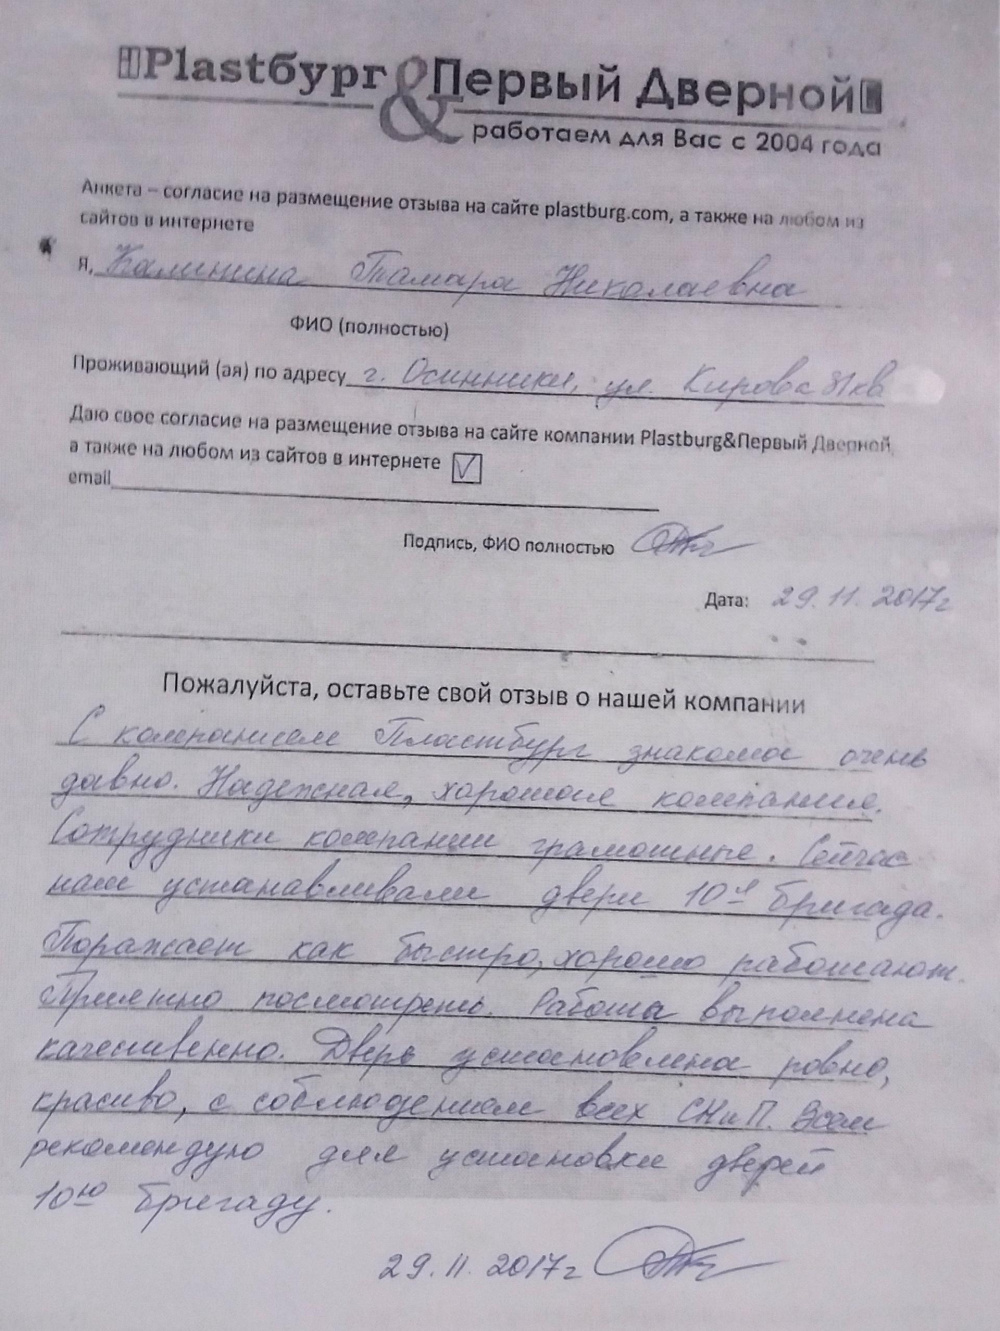 Plastбург & Первый Дверной
работаем для Вас с 2004 года
Анкета – согласие на размещение отзыва на сайте plastburg.com, а также на любом из
сайтов в интернете
Я, Калинина Тамара Николаевна
ФИО (полностью)
Проживающий (ая) по адресу г. Осинники, ул. Кирова 81 кв
Даю свое согласие на размещение отзыва на сайте компании Plastburg&Первый Дверной,
а также на любом из сайтов в интернете
email
Подпись, ФИО полностью
Дата: 29.11.2017г
Пожалуйста, оставьте свой отзыв о нашей компании
С компанией Пластбург знакома очень
давно. Надежная, хорошая компания.
Сотрудники компании грамотные. Сейчас
нам устанавливали двери 10я бригада.
Поражает как быстро, хорошо работают.
Приятно посмотреть. Работа выполнена
качественно. Дверь установлена ровно,
красиво, с соблюдением всех СНиП. Всем
рекомендую для установки дверей
10ю бригаду.
29.11.2017г